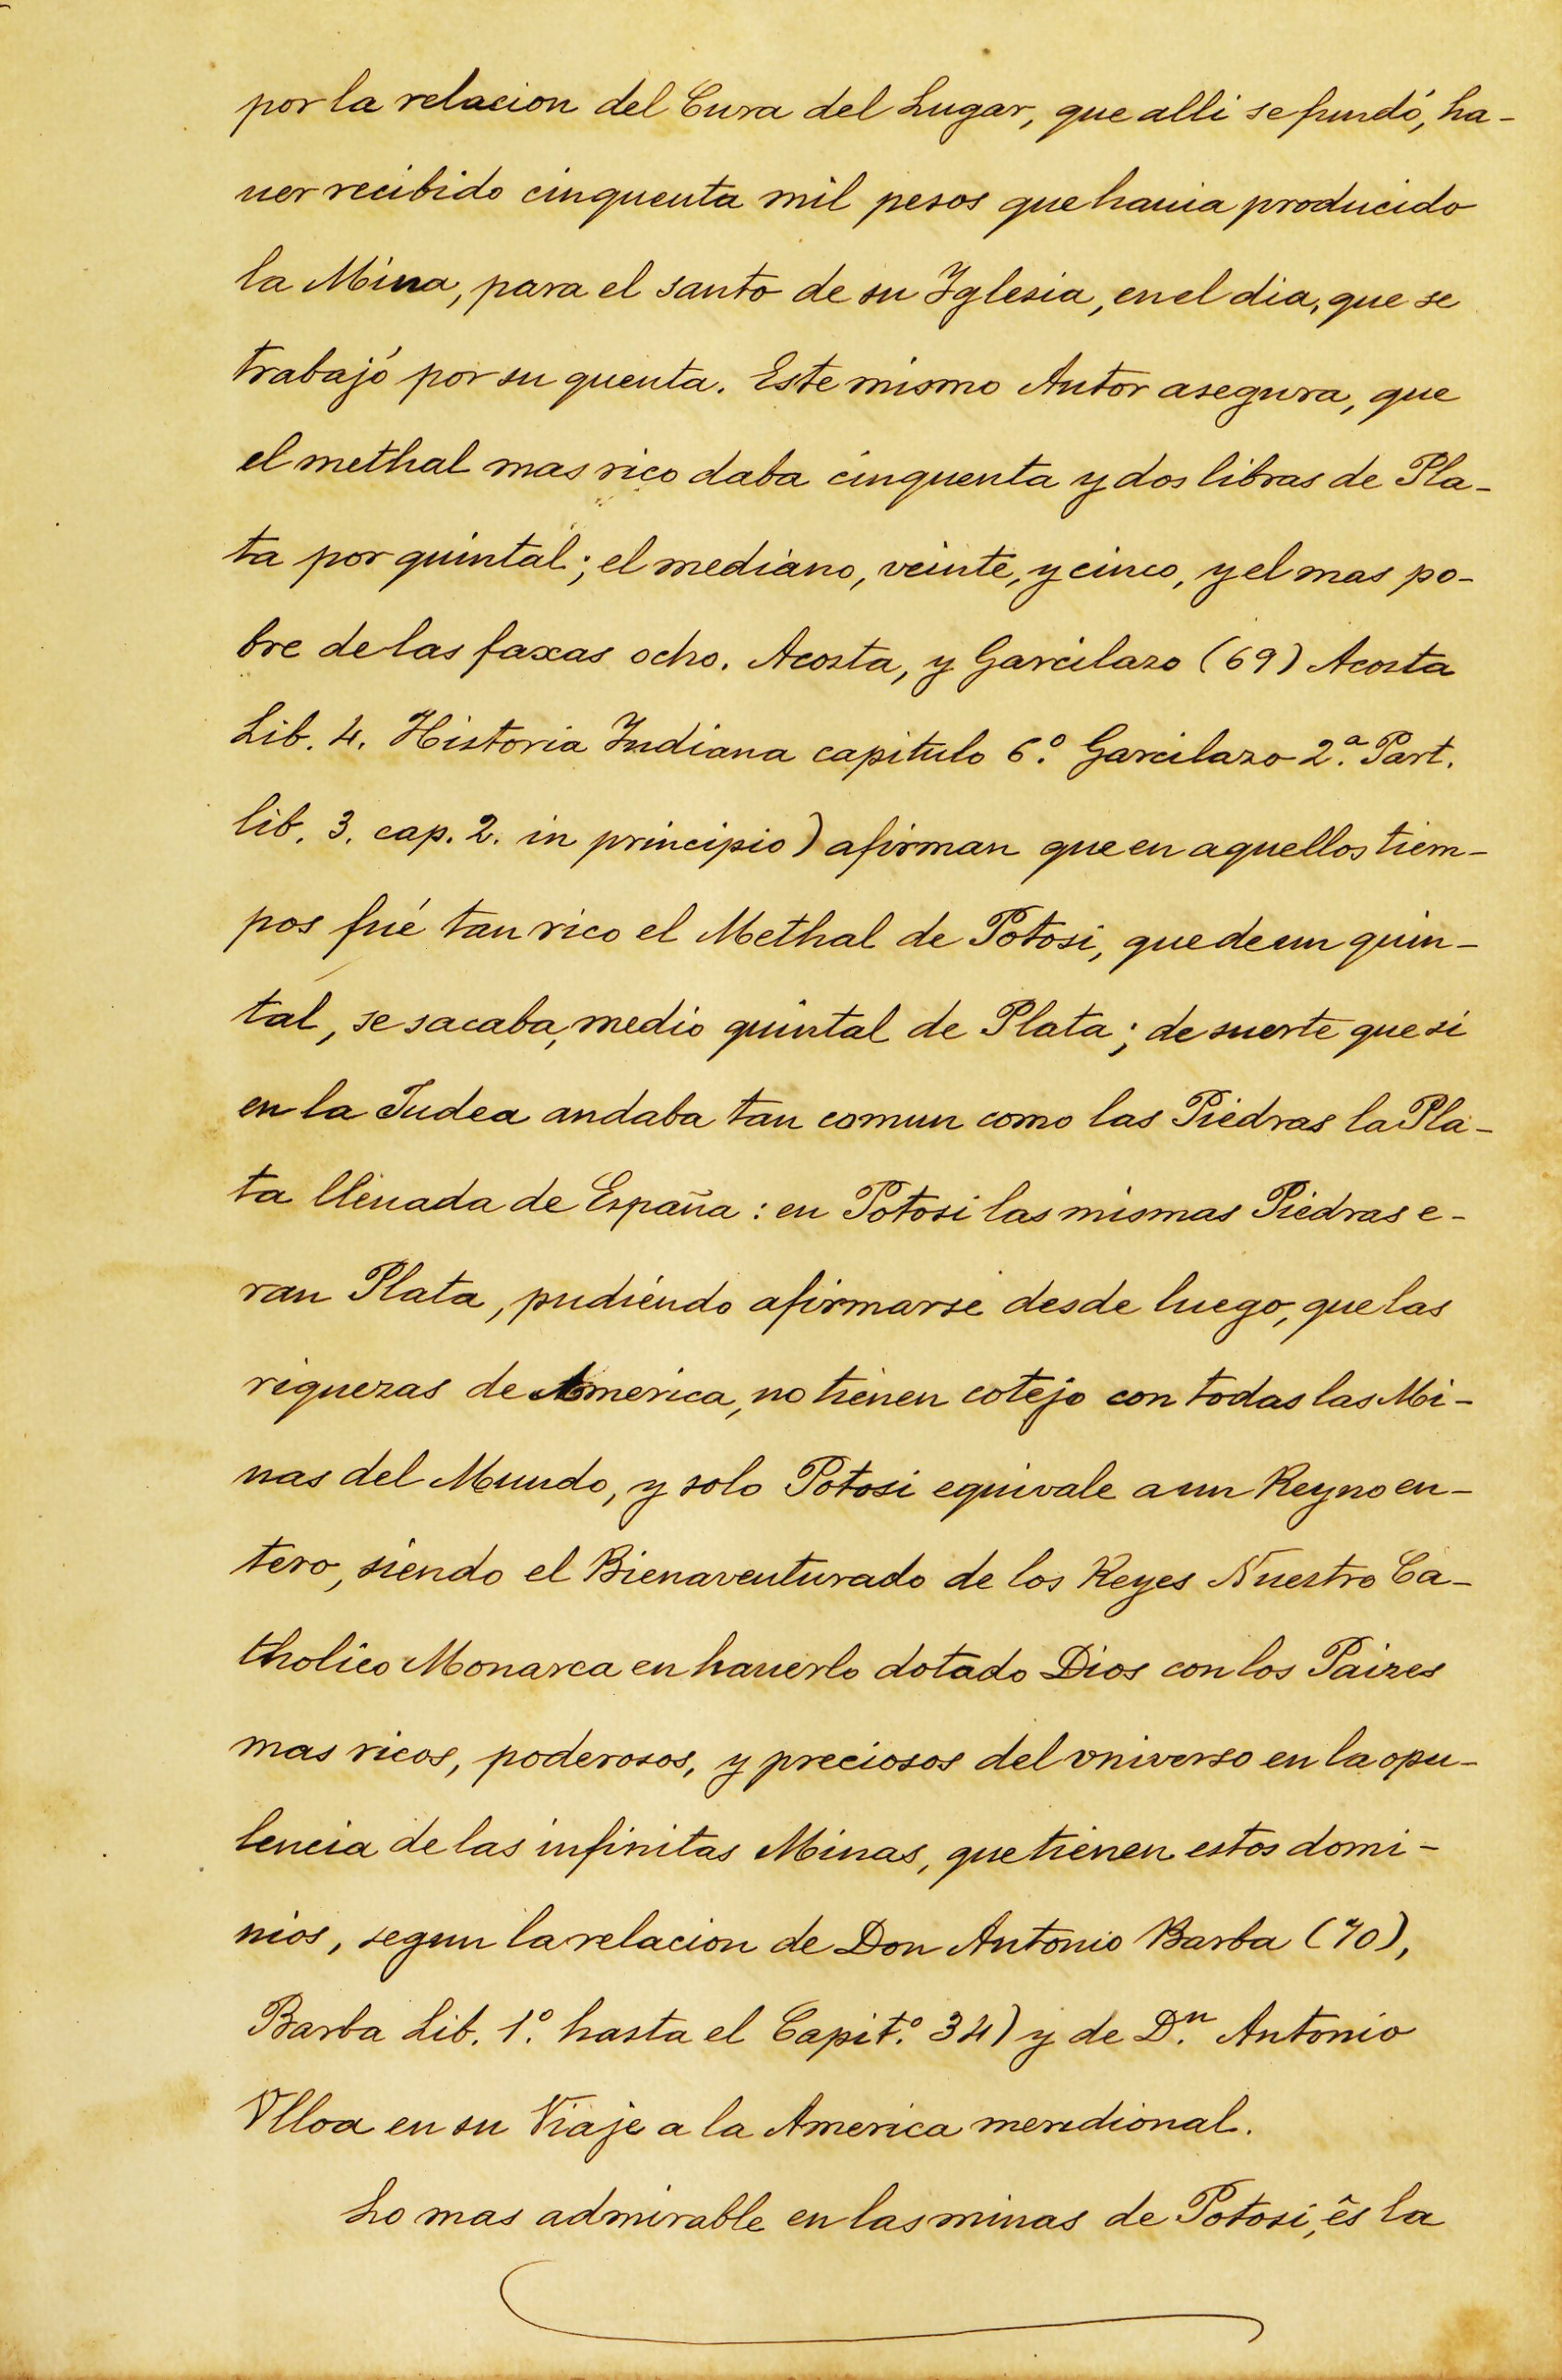 por la relacion del Cura del Lugar, que alli se fundó, ha-
uer recibido cinquenta mil pesos que hauia producido
la Mina, para el santo de su Yglesia, en el dia, que se
trabajó por su quenta. Este mismo Autor asegura, que
el methal mas rico daba cinquenta y dos libras de Pla-
ta por quintal; el mediano, veinte, y cinco, y el mas po-
bre de las faxas ocho. Acosta, y Garcilazo (69) Acosta
Lib. 4. Historia Yndiana capitulo 6.º Garcilazo 2.ª Part.
lib. 3. cap. 2. in principio) afirman que en aquellos tiem-
pos fué tan rico el Methal de Potosi, que de un quin-
tal, se sacaba, medio quintal de Plata; de suerte que si
en la Judea andaba tan comun como las Piedras la Pla-
ta lleuada de España: en Potosi las mismas Piedras e-
ran Plata, pudiendo afirmarse desde luego, que las
riquezas de America, no tienen cotejo con todas las Mi-
nas del Mundo, y solo Potosi equivale a un Reyno en-
tero, siendo el Bienaventurado de los Reyes Nuestro Ca-
tholico Monarca en hauerlo dotado Dios con los Paizes
mas ricos, poderosos, y preciosos del vniverso en la opu-
lencia de las infinitas Minas, que tienen estos domi-
nios, segun la relacion de Don Antonio Barba (70),
Barba Lib. 1.º hasta el Capit.º 34) y de D.n Antonio
Vlloa en su Viaje a la America meridional.
Lo mas admirable en las minas de Potosi, ês la